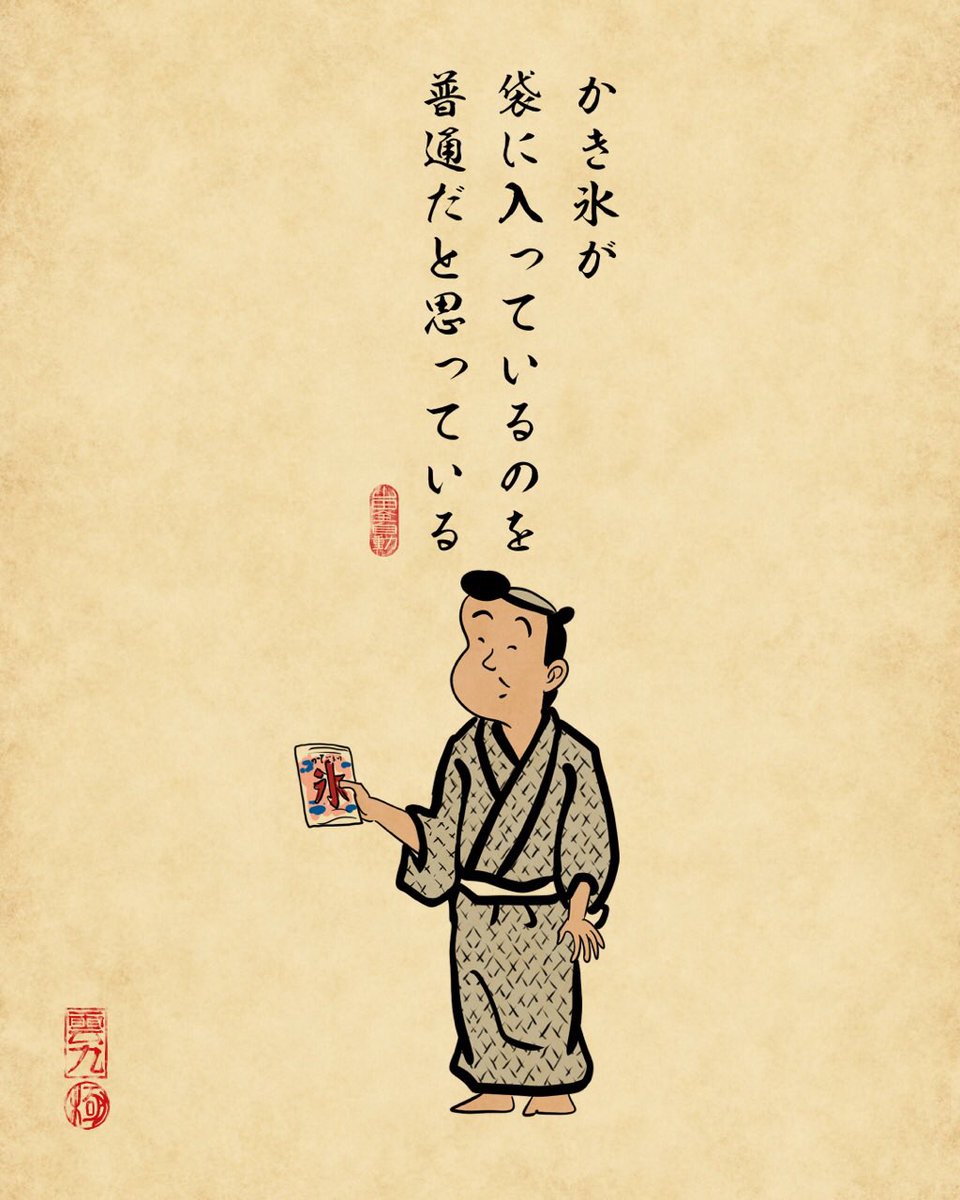 かき氷が
袋に入っているのを
普通だと思っている
氷
雲九
極